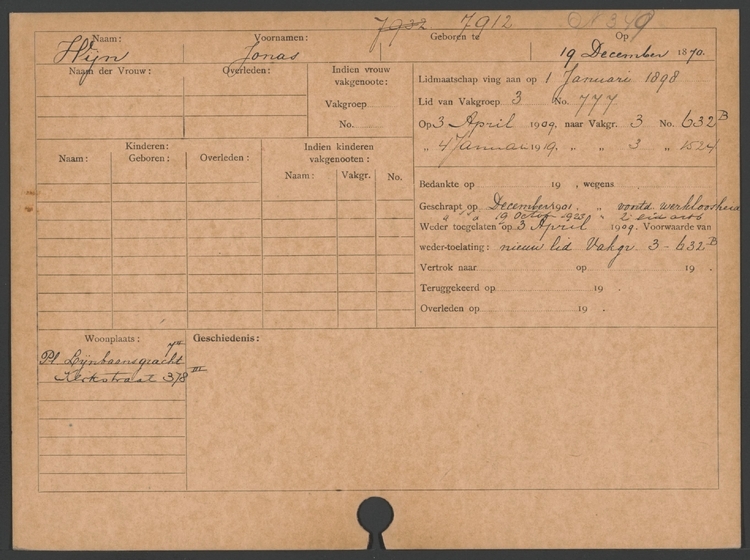 7932 7912 N 349
Naam: Voornamen: Geboren te Op
Wijn Jonas 19 December 1870.
Naam der Vrouw: Overleden: Indien vrouw vakgenoote:
Vakgroep
No.
Lidmaatschap ving aan op 1 Januari 1898
Lid van Vakgroep 3 No. 777
Op 3 April 1909, naar Vakgr. 3 No. 632 B
„ 4 Januari 1919, „ „ 3 „ 1524
Kinderen: Indien kinderen vakgenooten:
Naam: Geboren: Overleden: Naam: Vakgr. No.
Bedankte op 19 , wegens
Geschrapt op December 1901. „ voortd. werkloosheid
" " " 19 October 1923 "
Weder toegelaten op 3 April 1909. Voorwaarde van
weder-toelating: nieuw lid Vakgr. 3 - 632 B
Vertrok naar op 19 .
Teruggekeerd op 19 .
Overleden op 19 .
Woonplaats: Geschiedenis:
Pl Lijnbaansgracht 7 II
Kerkstraat 378 III